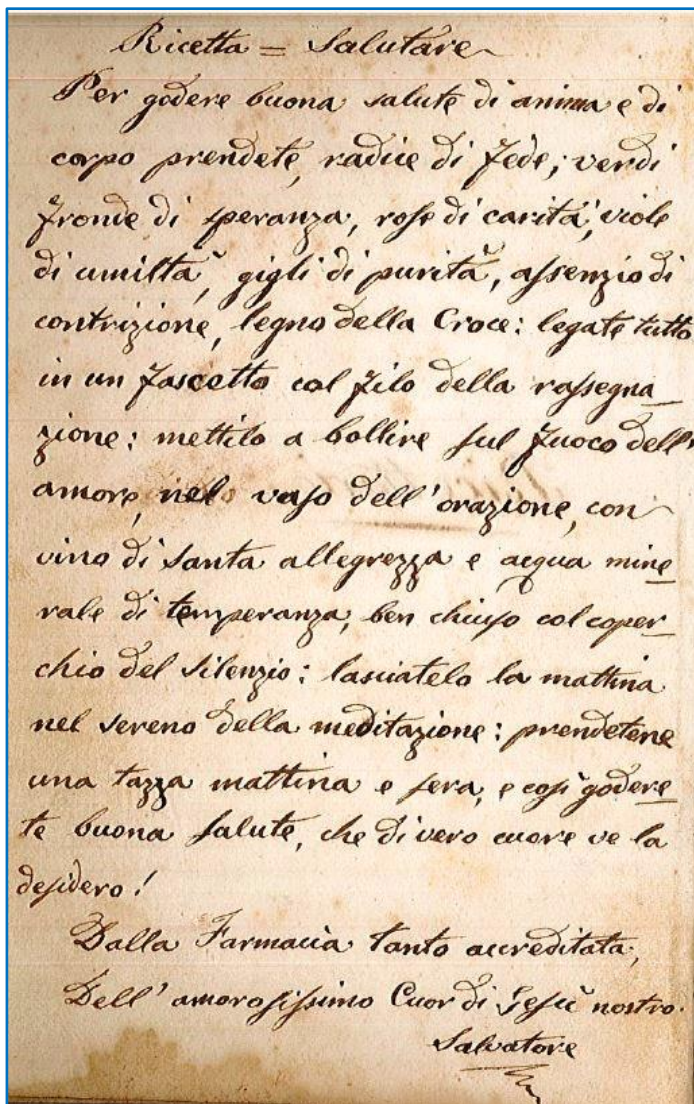 Ricetta = Salutare
Per godere buona salute di anima e di
corpo prendete, radice di fede; verdi
fronde di speranza, rose di carità, viole
di umiltà, gigli di purità, assenzio di
contrizione, legno della Croce: legate tutto
in un fascetto col filo della rassegna_
zione: mettilo a bollire sul fuoco dell'
amore, nel vaso dell'orazione, con
vino di santa allegrezza e acqua mine_
rale di temperanza, ben chiuso col coper_
chio del silenzio: lasciatelo la mattina
nel sereno della meditazione: prendetene
una tazza mattina e sera, e così godere_
te buona salute, che di vero cuore ve la
desidero!
Dalla Farmacia tanto accreditata,
Dell' amorosissimo Cuor di Gesù nostro
Salvatore